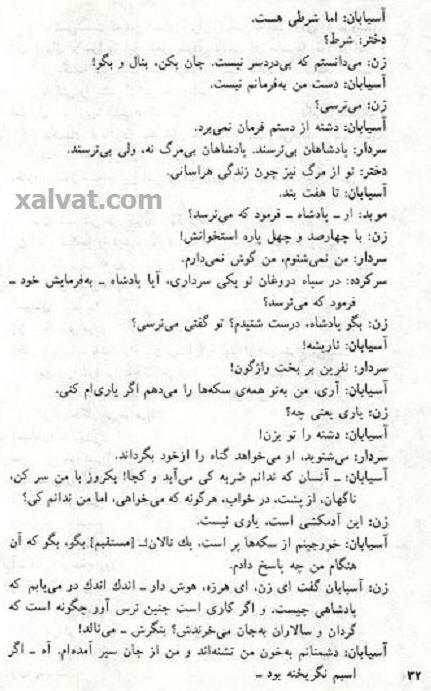 آسیابان: اما شرطی هست.
دختر: شرط؟
زن: می‌دانستم که بی‌دردسر نیست. جان بکن، بنال و بگو!
آسیابان: دست من به‌فرمانم نیست.
زن: می‌ترسی؟
آسیابان: دشنه از دستم فرمان نمی‌برد.
سردار: پادشاهان بی‌ترسند. پادشاهان بی‌مرگ نه، ولی بی‌ترسند.
دختر: تو از مرگ نیز چون زندگی هراسانی.
آسیابان: تا هفت بند.
xalvat.com
موبد: او ـ پادشاه ـ فرمود که می‌ترسد؟
زن: با چهارصد و چهل پاره استخوانش!
سردار: من نمی‌شنوم، من گوش نمی‌دارم.
سرکرده: در سپاه دروغان تو یکی سرداری، آیا پادشاه ـ به‌فرمایش خود ـ
فرمود که می‌ترسد؟
زن: بگو پادشاه، درست شنیدم؟ تو گفتی می‌ترسی؟
آسیابان: تاریشه!
سردار: نفرین بر بخت واژگون!
آسیابان: آری، من به‌تو همه‌ی سکه‌ها را می‌دهم اگر یاری‌ام کنی.
زن: یاری یعنی چه؟
آسیابان: دشنه را تو بزن!
سردار: می‌شنوید، او می‌خواهد گناه را ازخود بگرداند.
آسیابان: ـ آنسان که ندانم ضربه کی می‌آید و کجا! یکروز با من سر کن،
ناگهان، از پشت، در خواب، هرگونه که می‌خواهی، اما من ندانم کی؟
زن: این آدمکشی است، یاری نیست.
آسیابان: خورجینم از سکه‌ها پر است. یك تالان‌ك. [مستقیم] بگو، بگو که آن
هنگام من چه پاسخ دادم.
زن: آسیابان گفت ای زن، ای هرزه، هوش دار ـ اندك اندك در می‌یابم که
پادشاهی چیست. و اگر کاری است چنین ترس آور چگونه است که
گردان و سالاران به‌جان می‌خرندش؟ بنگرش ـ می‌نالد!
آسیابان: دشمنانم به‌خون من تشنه‌اند و من از جان سیر آمده‌ام. آه ـ اگر
اسبم نگریخته بود ـ
۳۲